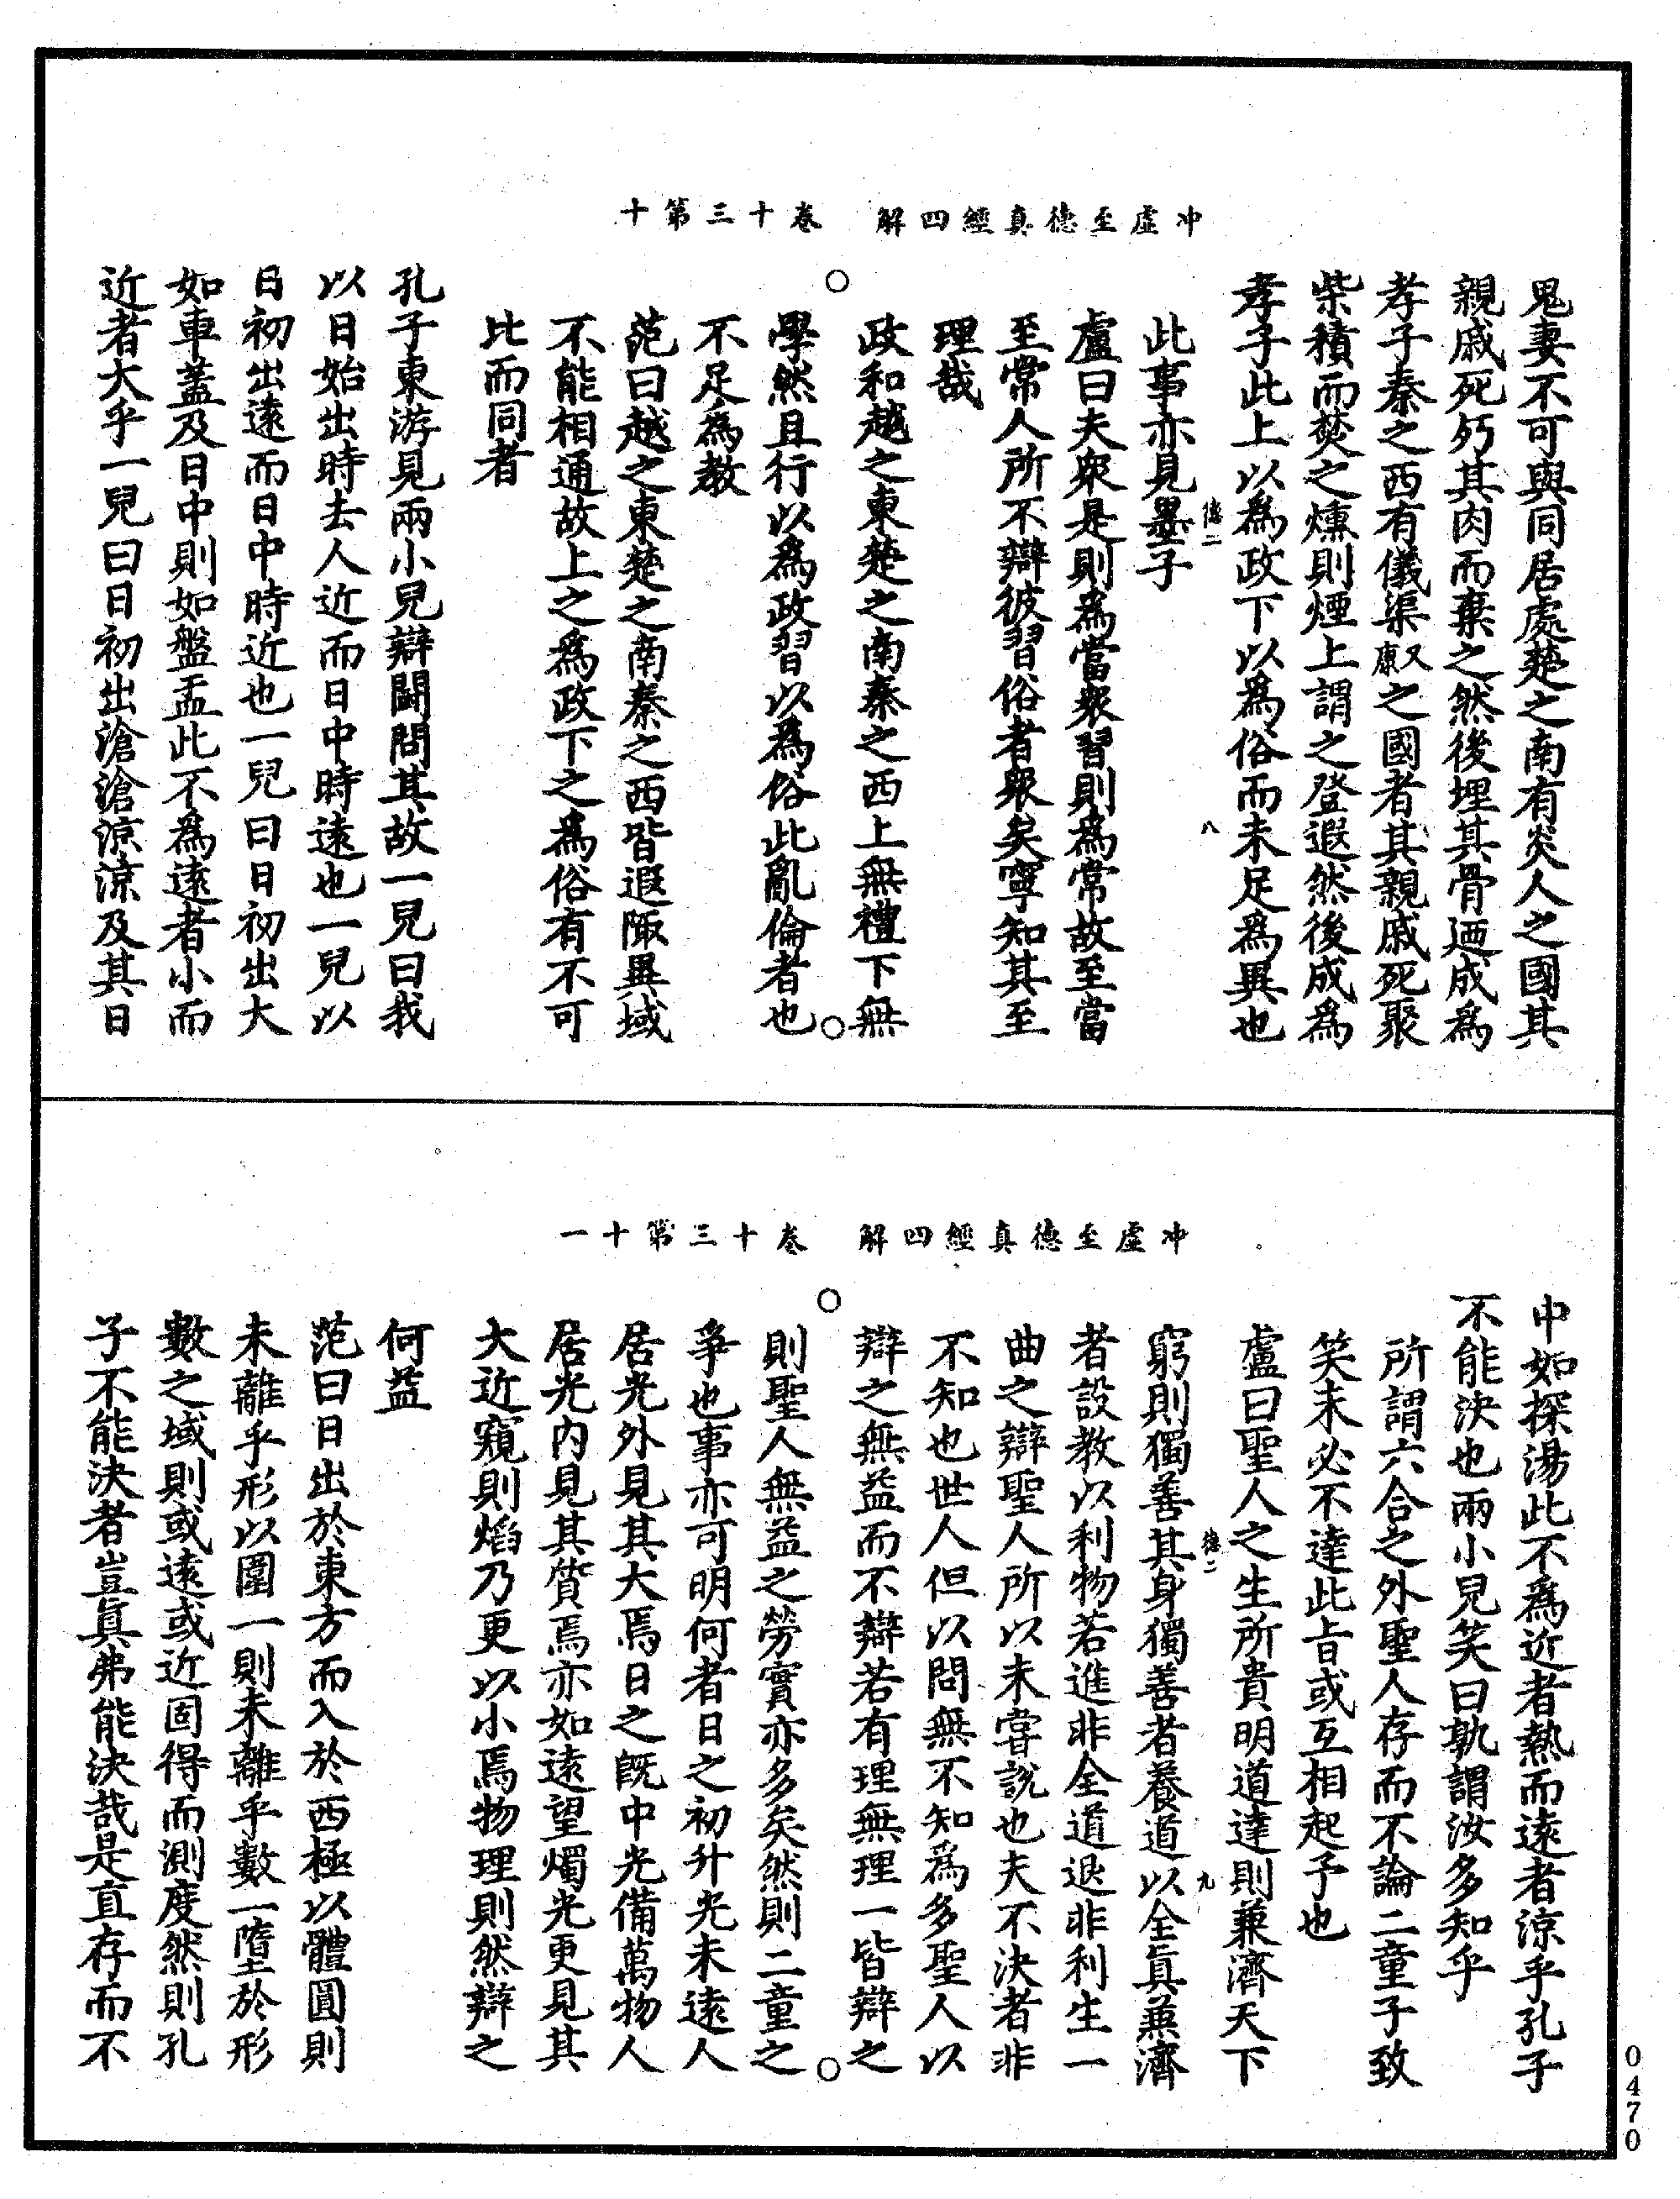 冲虛至德真經四解　卷十三第十
鬼妻不可與同居處楚之南有炎人之國其
親戚死㱙其肉而棄之然後埋其骨廼成為
孝子秦之西有儀渠又康之國者其親戚死聚
柴積而焚之燻則煙上謂之登遐然後成為
孝子此上以為政下以為俗而未足為異也
德二　八
此事亦見墨子
盧曰夫衆是則為當衆習則為常故至當
至常人所不辯彼習俗者衆矣寧知其至
理哉
政和越之東楚之南秦之西上無禮下無
學然且行以為政習以為俗此亂倫者也
不足為教
范曰越之東楚之南秦之西皆遐陬異域
不能相通故上之為政下之為俗有不可
比而同者
孔子東游見兩小兒辯鬭問其故一兒曰我
以日始出時去人近而日中時遠也一兒以
日初出遠而日中時近也一兒曰日初出大
如車蓋及日中則如盤盂此不為遠者小而
近者大乎一兒曰日初出滄滄涼涼及其日
冲虛至德真經四解　卷十三第十一
中如探湯此不為近者熱而遠者涼乎孔子
不能決也兩小兒笑曰孰謂汝多知乎
所謂六合之外聖人存而不論二童子致
笑未必不達此旨或互相起予也
盧曰聖人之生所貴明道達則兼濟天下
德二　九
窮則獨善其身獨善者養道以全真兼濟
者設教以利物若進非全道退非利生一
曲之辯聖人所以未嘗說也夫不決者非
不知也世人但以問無不知為多聖人以
辯之無益而不辯若有理無理一皆辯之
則聖人無益之勞實亦多矣然則二童之
爭也事亦可明何者日之初升光未遠人
居光外見其大焉日之既中光備萬物人
居光內見其質焉亦如遠望燭光更見其
大近窺則焰乃更以小焉物理則然辯之
何益
范曰日出於東方而入於西極以體圓則
未離乎形以圍一則未離乎數一墮於形
數之域則或遠或近固得而測度然則孔
子不能決者豈真弗能決哉是直存而不
0470